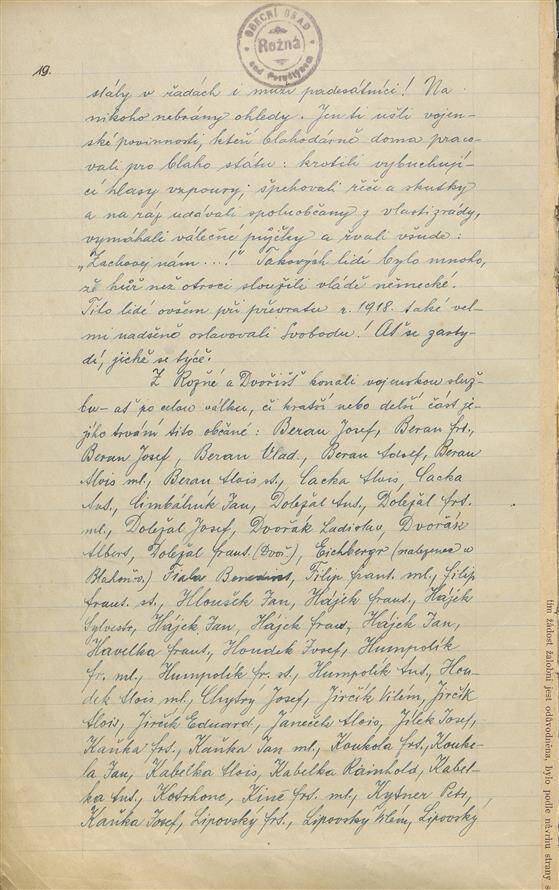 OBECNÍ ÚŘAD
Rožná
nad Pernštýnem
19.
stály v řadách i muži padesátníci! Na
nikoho nebrány ohledy. Jen ti ušli vojen-
ské povinnosti, kteří blahodárně doma praco-
vali pro blaho státu: krotili vybuchují-
cí hlasy vzpoury; špehovali řeči a skutky
a na ráz udávali spoluobčany z vlastizrády,
vymáhali válečné půjčky a rvali všude:
„Zachovej nám...!" Takových lidí bylo mnoho,
že hůř než otroci sloužili vládě německé.
Tito lidé ovšem při převratu r. 1918 také vel-
mi nadšeně oslavovali Svobodu! Ať se zasty-
dí, jichž se týče.
Z Rožné a Dvořišť konali vojenskou služ-
bu – ať po celou válku, či kratší nebo delší část je-
jího trvání tito občané: Beran Josef, Beran frt.,
Beran Josef, Beran Vlad., Beran Adolf, Beran
Alois ml., Beran Alois st., Cacka Alois, Cacka
Ant., Cimbálník Jan, Doležal Ant., Doležal frt.
ml., Doležal Josef, Dvořák Ladislav, Dvořák
Albert, Doležal frant. (Dvoř.), Eichbergr (nalezenec u
) Fiala , Filip frant. ml., Filip
frant. st., Hloušek Jan, Hájek frant., Hájek
Sylvestr, Hájek Jan, Hájek frant., Hájek Jan,
Havelka frant., Houdek Josef, Humpolík
fr. ml., Humpolík fr. st., Humpolík Ant., Hou-
dek Alois ml., Chytrý Josef, Jirčík Vilém, Jirčík
Alois, Jirčík Eduard, Janeček Alois, Jílek Josef,
Kaňka frt., Kaňka Jan ml., Koukola frt., Kouko-
la Jan, Kabelka Alois, Kabelka Rainhold, Kabel-
ka Ant., Kincl frt. ml., Kytner Petr,
Kaňka Josef, Lipovský frt., Lipovský Vilém, Lipovský
tím žádost žalobní jest odůvodněna, bylo podle návrhu strany